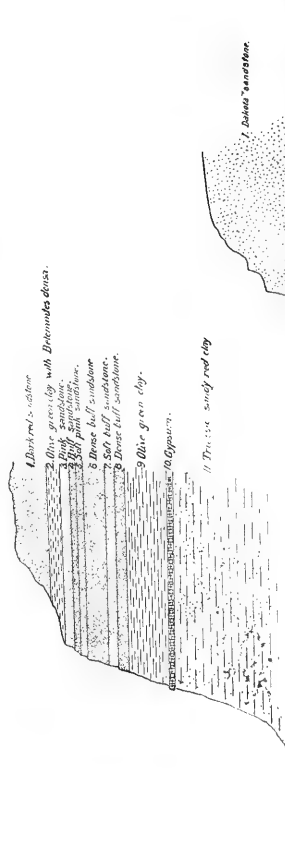 1. Dakota sandstone.
1. Dark red sandstone
2. Olive green clay with Belemnites densa.
3. Pink sandstone.
4. Buff sandstone.
5. Soft pink sandstone.
6 Dense buff sandstone
7. Soft buff sandstone.
8 Dense buff sandstone.
9 Olive green clay.
10. Gypsum.
11 Triassic sandy red clay